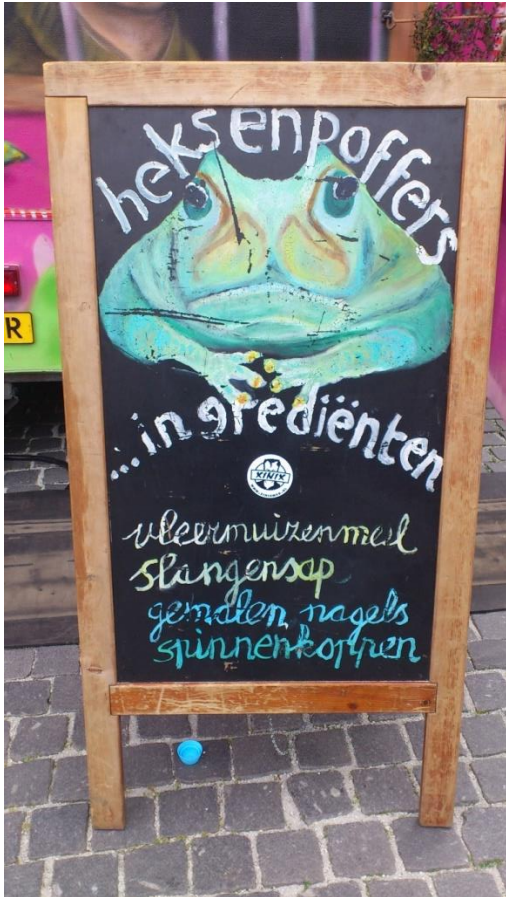 heksenpoffers
...ingrediënten
XINIX
vleermuizenmeel
slangensap
gemalen nagels
spinnenkoppen
R